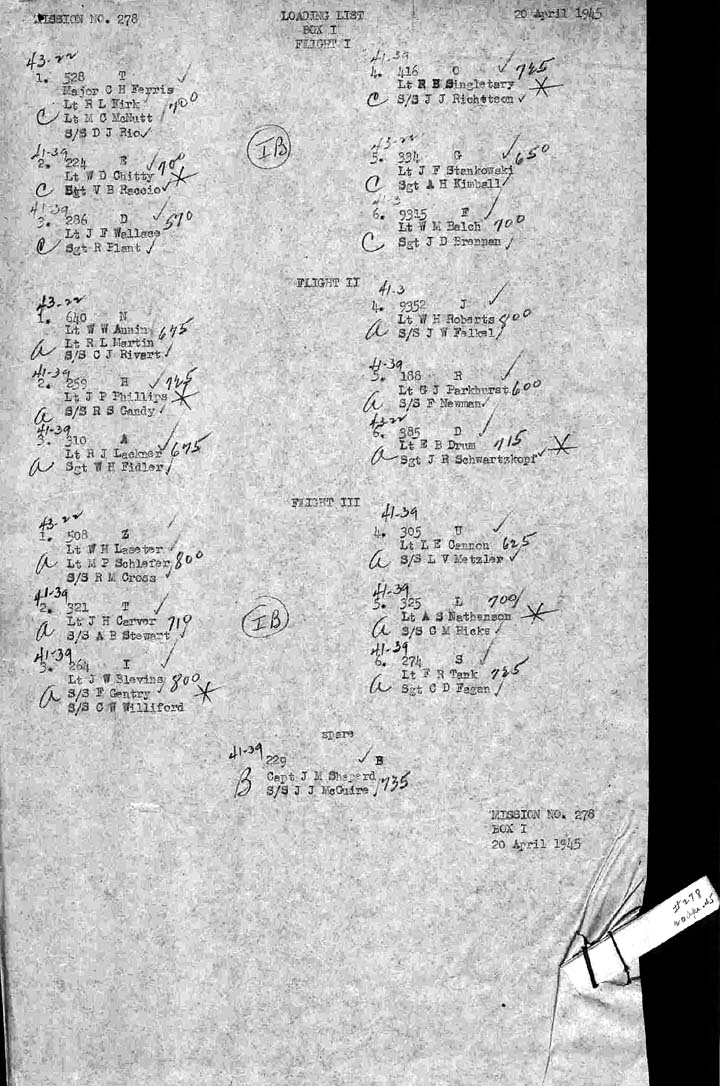 MISSION NO. 278
LOADING LIST
20 April 1945
BOX I
FLIGHT I
43-22
1. 528 T
Major C H Ferris
Lt R L Kirk 700
C Lt M C McNutt
S/S D J Rio
41-39
2. 224 E
Lt W D Chitty 700
C Sgt V B Raccio
41-39
3. 286 D
Lt J F Wallace 570
C Sgt R Plant
41-39
4. 416 O 725
Lt R B Singletary
C S/S J J Richetson
43-22
5. 334 G 650
Lt J F Stankowski
C Sgt A H Kimball
41-3
6. 9315 F
Lt W M Balch 700
C Sgt J D Brennan
IB
FLIGHT II
43-22
1. 640 N
Lt W W Annin 675
a Lt R L Martin
S/S C J Rivart
41-39
2. 259 H 725
Lt J P Phillips
a S/S R S Gandy
41-39
3. 310 A
Lt R J Lackner 675
a Sgt W H Fidler
41-3
4. 9352 J
Lt W H Roberts 800
a S/S J W Falkel
41-39
5. 188 R
Lt G J Parkhurst 600
a S/S F Newman
43-22
6. 385 D
Lt E B Drum 715
a Sgt J R Schwartzkopf
FLIGHT III
43-22
1. 508 Z
Lt W H Laseter
a Lt M P Schlefer 800
S/S R M Cross
41-39
2. 321 T
Lt J H Carver 710
a S/S A B Stewart
41-39
3. 264 I
Lt J W Blevins 800
a S/S F Gentry
S/S C W Williford
41-39
4. 305 U
Lt L E Cannon 625
a S/S L V Metzler
41-39
5. 325 L 700
Lt A S Nathenson
a S/S C M Hicks
41-39
6. 274 S
Lt F R Tank 725
a Sgt C D Fagan
IB
spare
41-39
229 B
Capt J M Shepard
B S/S J J McGuire 735
MISSION NO. 278
BOX I
20 April 1945
#278